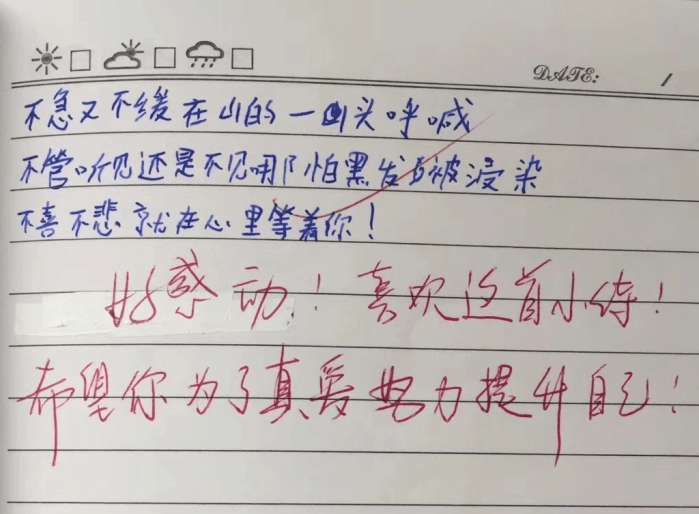 DATE:
不急又不缓在山的一山头呼喊
不管听见还是不见哪怕黑发白被浸染
不喜不悲就在心里等着你！
好感动！喜欢这首小诗！
希望你为了真爱努力提升自己！